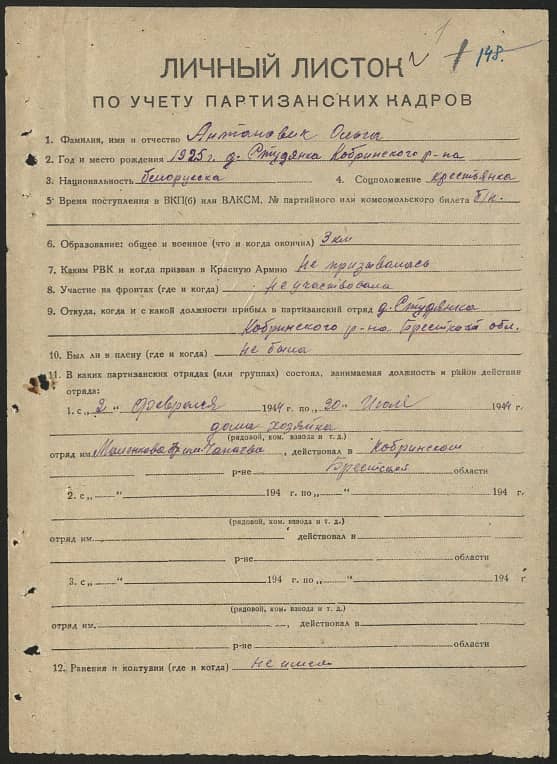 148.
ЛИЧНЫЙ ЛИСТОК
ПО УЧЕТУ ПАРТИЗАНСКИХ КАДРОВ
1. Фамилия, имя и отчество Антанович Ольга
2. Год и место рождения 1925 г. д. Студянка Кобринского р-на
3. Национальность белорусска 4. Соцположение крестьянка
5. Время поступления в ВКП(б) или ВЛКСМ, № партийного или комсомольского билета б/п.
6. Образование: общее и военное (что и когда окончил) 3 кл
7. Каким РВК и когда призван в Красную Армию не призывалась
8. Участие на фронтах (где и когда) не участвовала
9. Откуда, когда и с какой должности прибыл в партизанский отряд д. Студянка
Кобринского р-на Брестской обл.
10. Был ли в плену (где и когда) не была
11. В каких партизанских отрядах (или группах) состоял, занимаемая должность и район действия
отряда:
1. с „2“ Февраля 1944 г. по „20“ Июля 1944 г.
дома хозяйка
(рядовой, ком. взвода и т. д.)
отряд им. Чапаева, действовал в Кобринском
р-не Брестская области
2. с „ “ 194 г. по „ “ 194 г.
(рядовой, ком. взвода и т. д.)
отряд им. действовал в
р-не области
3. с „ “ 194 г. по „ “ 194 г
(рядовой, ком. взвода и т. д.)
отряд им. , действовал в
р-не области
12. Ранения и контузии (где и когда) не имела